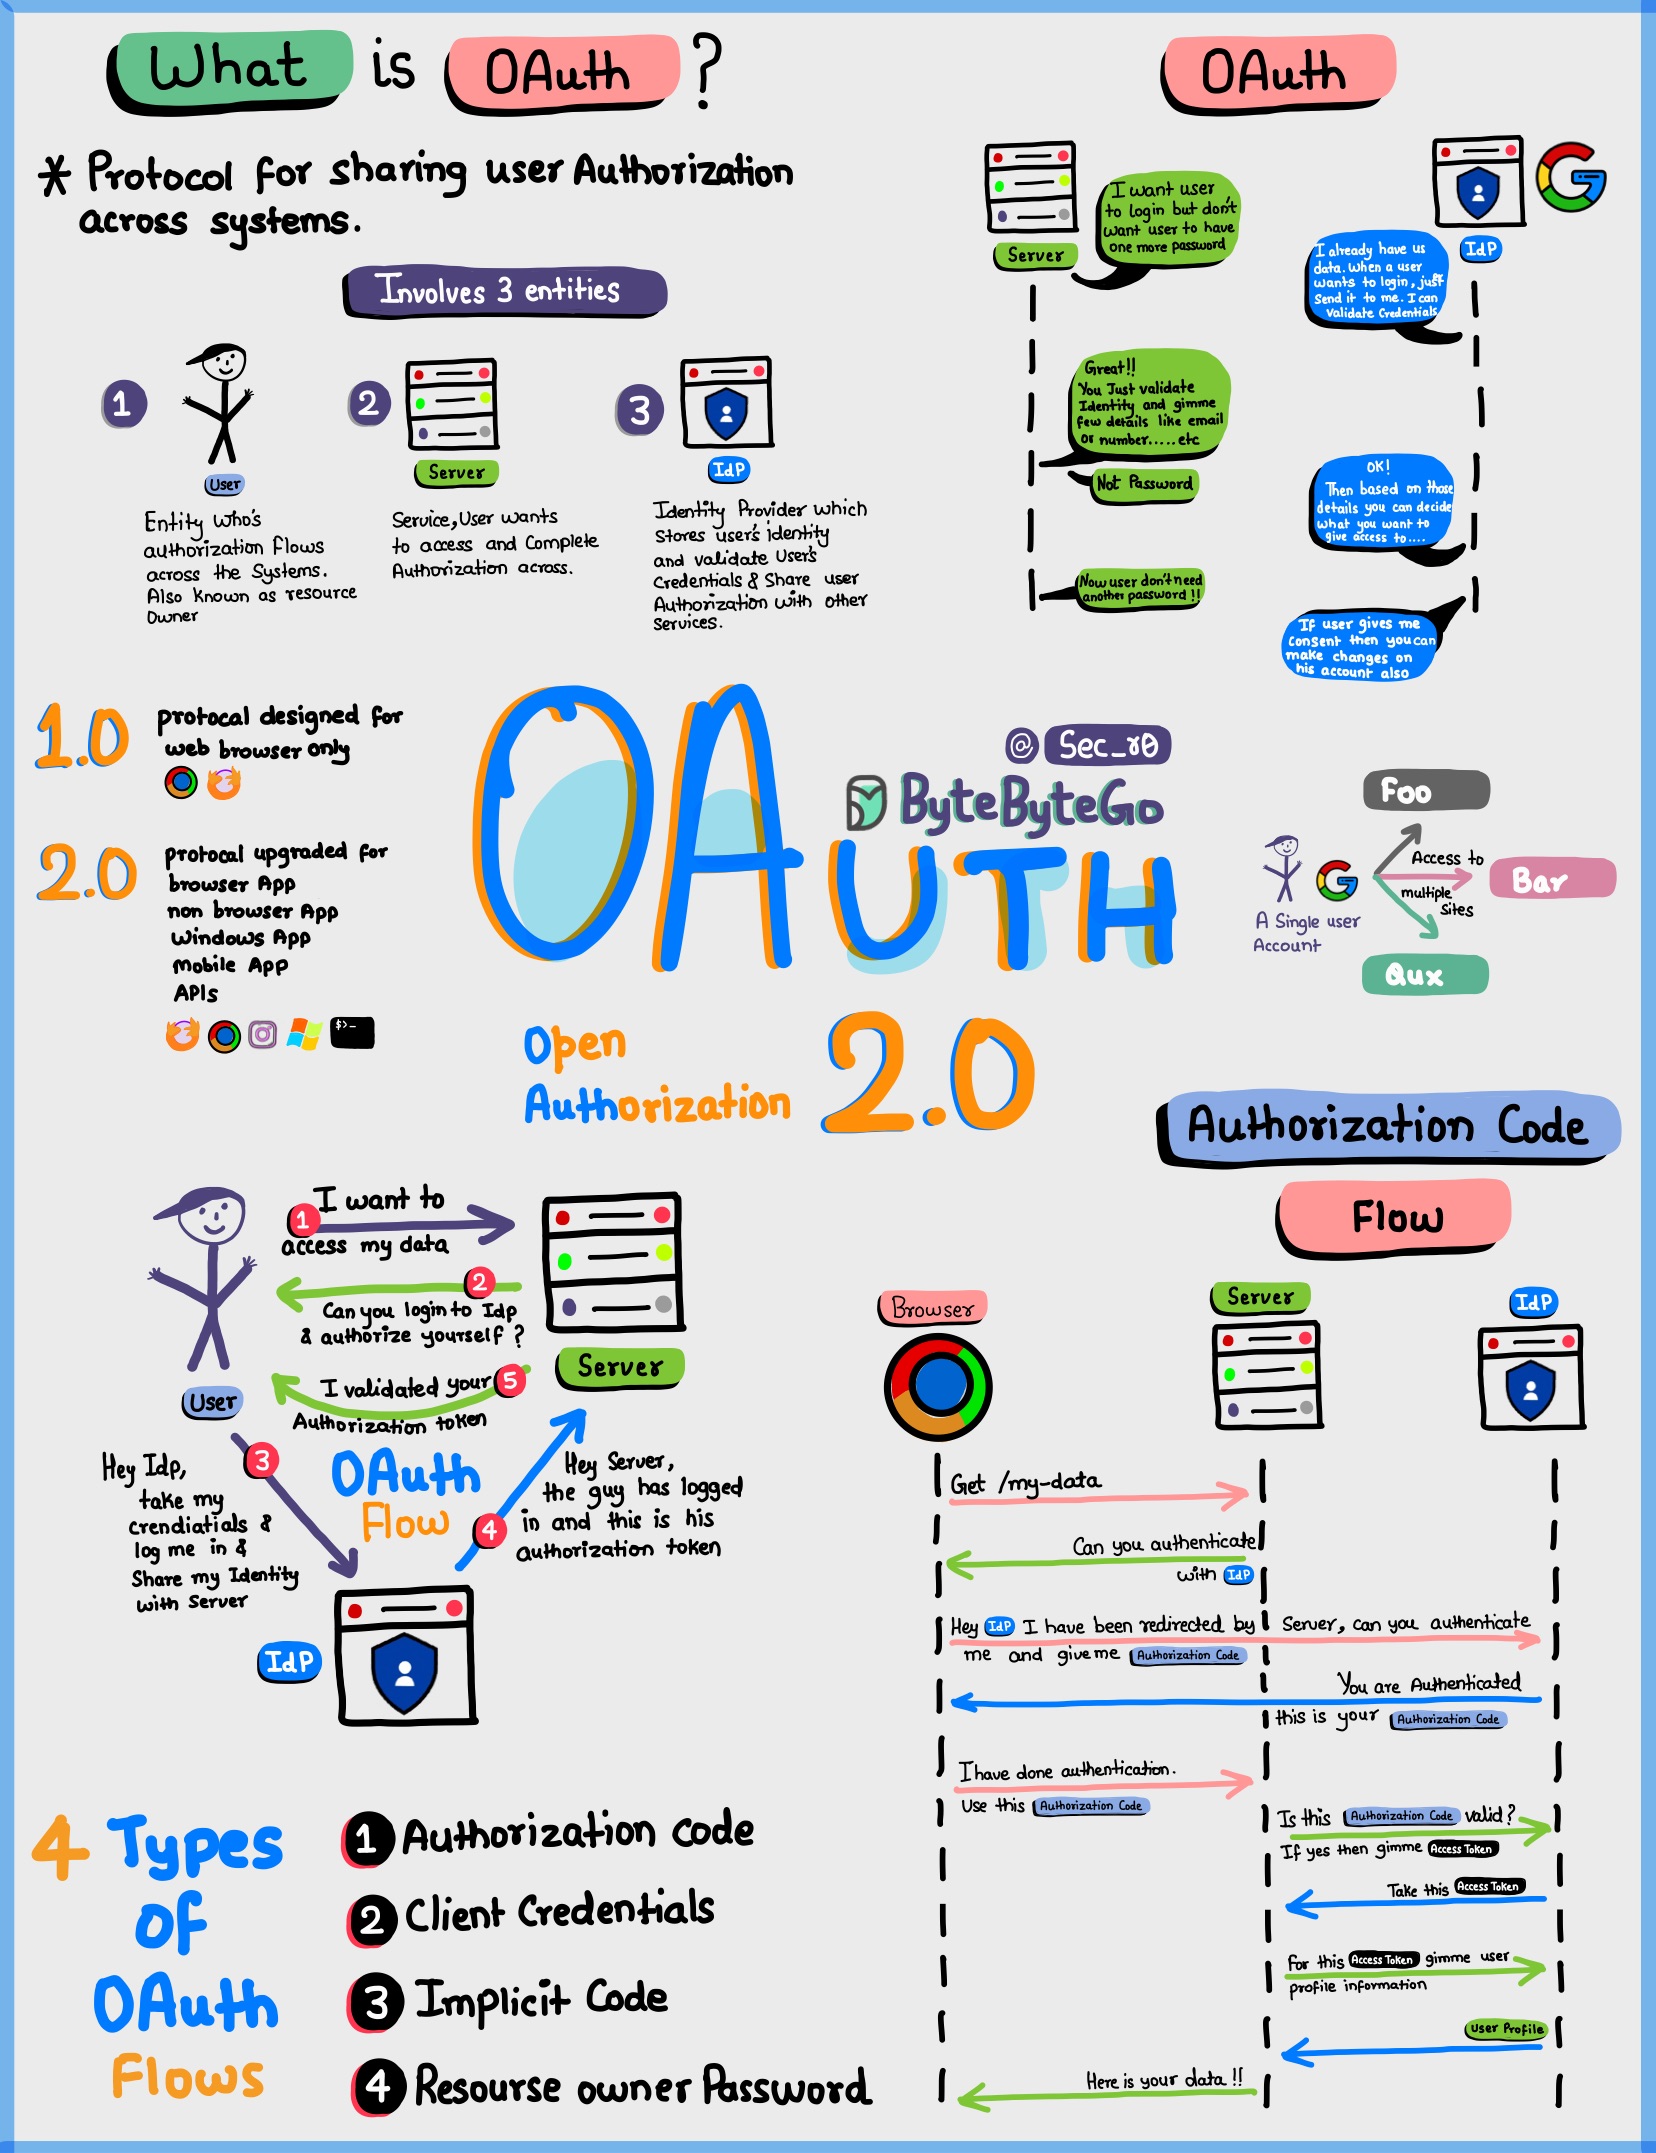 What is OAuth ?
* Protocol for sharing user Authorization
across systems.
Involves 3 entities
1
User
Entity who's
authorization flows
across the Systems.
Also known as resource
Owner
2
Server
Service, User wants
to access and Complete
Authorization across.
3
IdP
Identity Provider which
Stores user's identity
and validate User's
Credentials & Share user
Authorization with other
Services.
OAuth
Server
IdP
I want user
to login but don't
want user to have
one more password
I already have us
data. When a user
wants to login, just
Send it to me. I can
Validate Credentials
Great!!
You Just validate
Identity and gimme
few details like email
or number.....etc
Not Password
OK!
Then based on those
details you can decide
what you want to
give access to....
Now user don't need
another password !!
If user gives me
Consent then you can
make changes on
his account also
1.0
protocal designed for
web browser only
2.0
protocal upgraded for
browser App
non browser App
Windows App
Mobile App
APIs
$>-
@ Sec_r0
ByteByteGo
OAUTH
Open
Authorization
2.0
A Single user
Account
Access to
multiple
Sites
Foo
Bar
Qux
User
Server
IdP
1
I want to
access my data
2
Can you login to Idp
& authorize yourself ?
5
I validated your
Authorization token
3
Hey Idp,
take my
crendiatials &
log me in &
Share my Identity
with Server
OAuth
Flow
4
Hey Server,
the guy has logged
in and this is his
authorization token
Authorization Code
Flow
Browser
Server
IdP
Get /my-data
Can you authenticate
with IdP
Hey IdP I have been redirected by Server, can you authenticate
me and give me Authorization Code
You are Authenticated
this is your Authorization Code
I have done authentication.
Use this Authorization Code
Is this Authorization Code valid?
If yes then gimme Access Token
Take this Access Token
For this Access Token gimme user
profile information
User Profile
Here is your data !!
4 Types
of
OAuth
Flows
1 Authorization code
2 Client Credentials
3 Implicit Code
4 Resourse owner Password